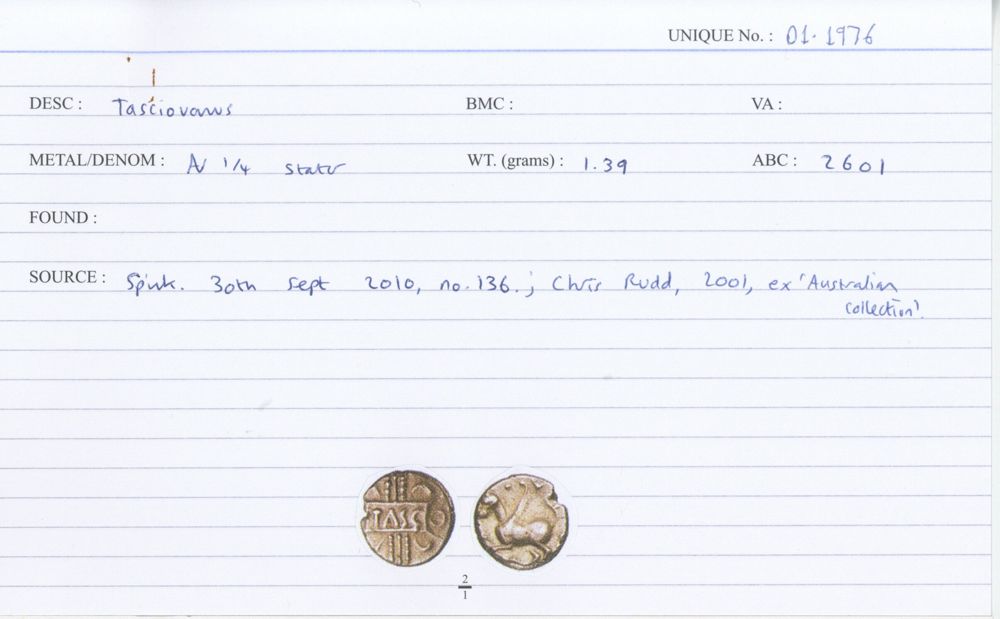 UNIQUE No. : 01.1976
DESC : Tasciovanus BMC : VA :
METAL/DENOM : AV 1/4 stater WT. (grams) : 1.39 ABC : 2601
FOUND :
SOURCE : Spink. 30th Sept 2010, no.136.; Chris Rudd, 2001, ex 'Australian
collection'.
TASC
2
1